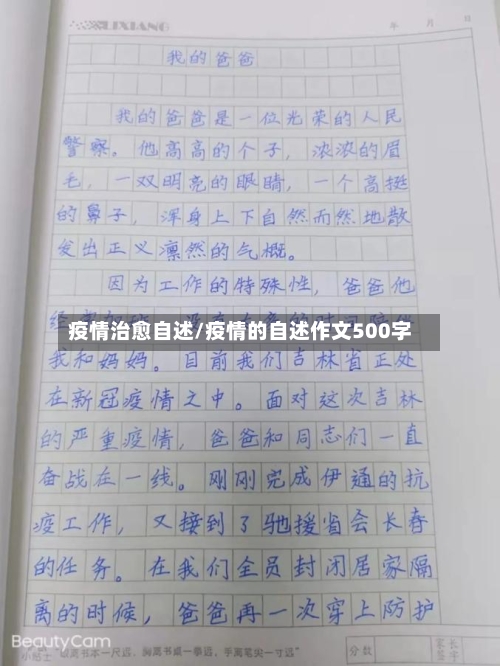 LIXIANG
年 月 日
我的爸爸
我的爸爸是一位光荣的人民
警察。他高高的个子，浓浓的眉
毛，一双明亮的眼睛，一个高挺
的鼻子，浑身上下自然而然地散
发出正义凛然的气概。
因为工作的特殊性，爸爸他
疫情治愈自述/疫情的自述作文500字
我和妈妈。目前我们吉林省正处
在新冠疫情之中。面对这次吉林
的严重疫情，爸爸和同志们一直
奋战在一线。刚刚完成伊通的抗
疫工作，又接到了驰援省会长春
的任务。在我们全员封闭居家隔
离的时候，爸爸再一次穿上防护
BeautyCam
小贴士 眼离书本一尺远，胸离书桌一拳远，手离笔尖一寸远
分数 家长签字